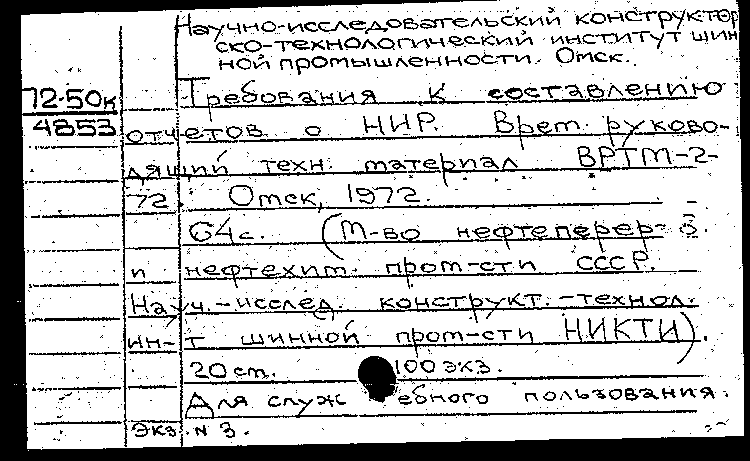 Научно-исследовательский конструктор
ско-технологический институт шин
ной промышленности. Омск.
72-50к
4853
Требования к составлению
отчетов о НИР. Врем. руково-
дящий техн. материал ВРТМ-2-
72. Омск, 1972.
64 с. (М-во нефтеперер-й.
и нефтехим. пром-сти СССР.
Науч.-исслед. конструкт.-технол.
ин-т шинной пром-сти НИКТИ).
20 cm. 100 экз.
Для служебного пользования.
Экз. N 3.